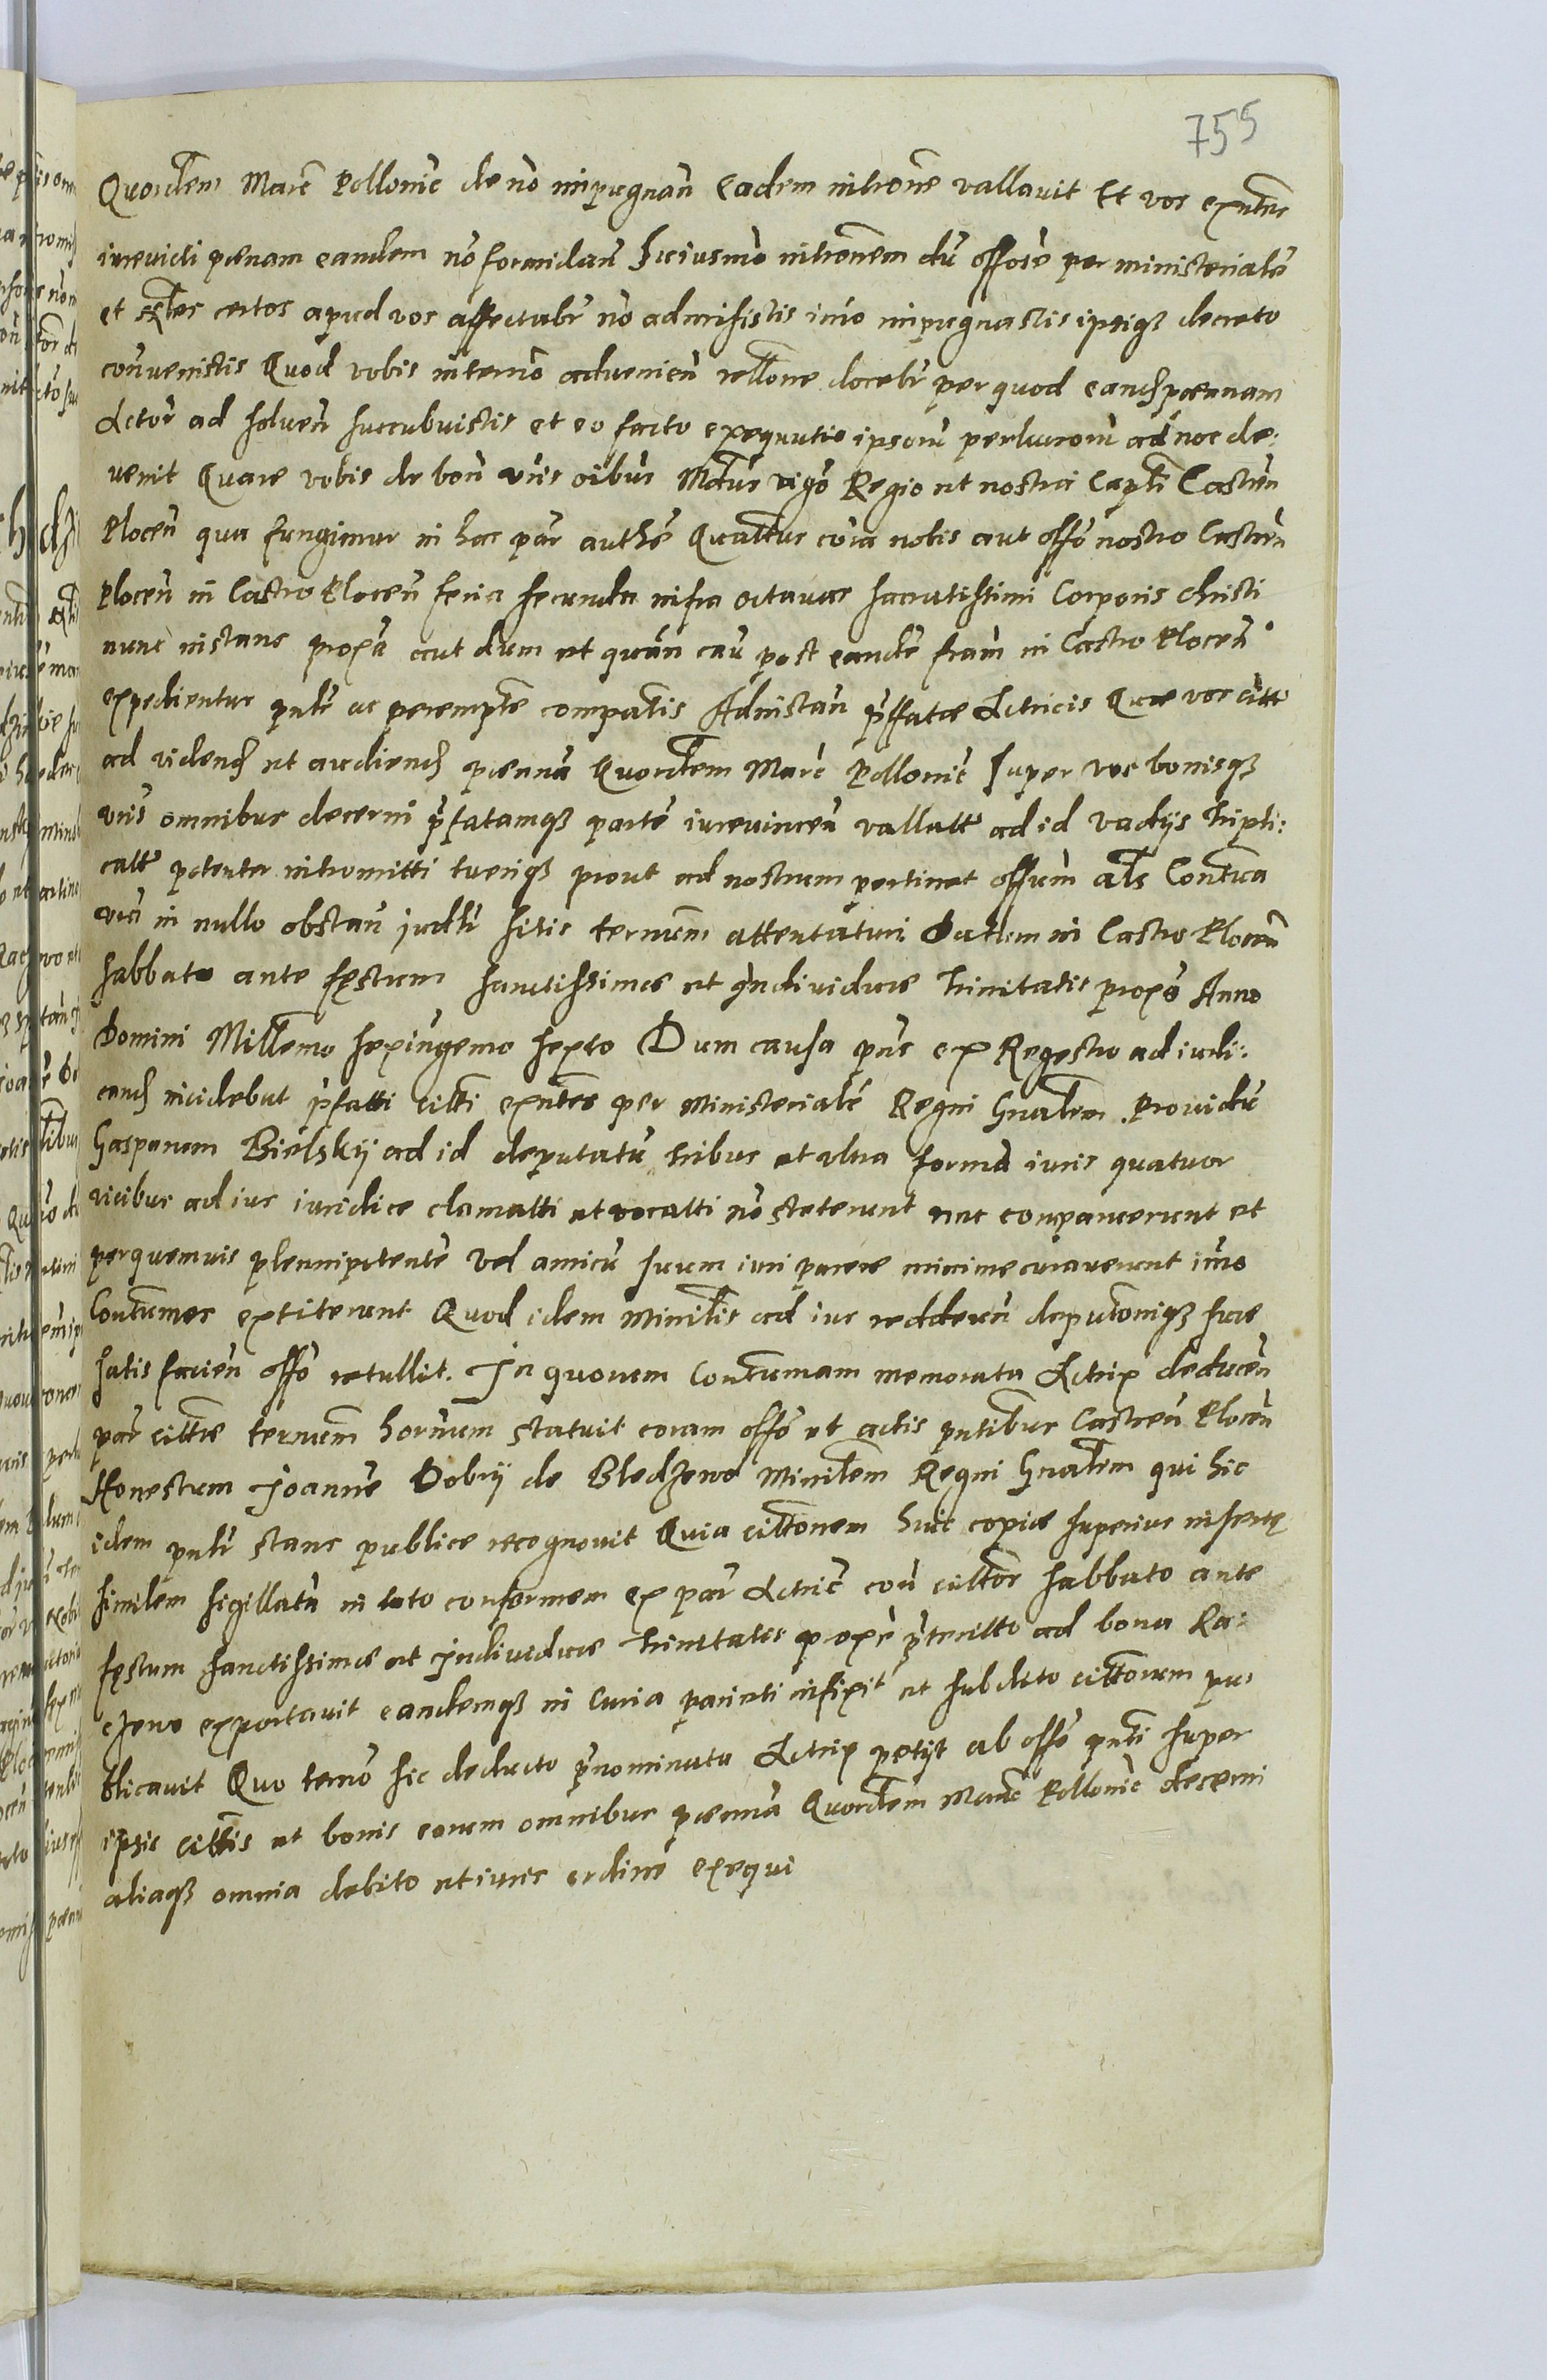 755
Quordem Marc̃ Pollonic̃ de nõ impugnan̄ Eadem intronẽ vallavit Et vos exñtes
iurevicti pænam eandem nõ formidan̄ Huiusmõ intronem cũ offoṙe per ministerialẽ
et nobiles certos apud vos affectabr̃ nõ admisistis imo impugnastis ipsiq₃ decreto
contravenistis Quod vobis in termõ advenien̄ rellone docebr̃ per quod eand pœnnam
Actori ad solven̄ succubuistis et eo facto exequutio ipsorũ perlucrorũ ad nos de:
venit Quare vobis de bon̄ vr̃is oĩbus Mttimus vigõ Regio et nostra Capti Castren̄
Plocen̄ qua fungimur in hac par authẽ Quattus corã nobis aut offõ nostro Castren̄
Plocen̄ in Castro Plocen̄ feria secunda infra octavas sacratissimi Corporis christi
nunc instans proxã aut dum et quan̄ cau post eandẽ friam in Castro Plocen̄
expedientur pntr̃ ac peremptẽ compatis Ad instan̄ p̃ffatæ Actricis Quæ vos citt
ad videnđ et audienđ pœnnã Quordem Marc̃ Pollonic̃ super vos bonisq₃
vr̃is omnibus decerni p̃fatamq₃ partẽ iurevincen̄ vallatt ad id vadijs tripli:
catt potenter intromitti tueriq₃ prout ad nostrum pertinet offum als Contuma
vrã in nullo obstan̄ juditr̃ sitis termem attentaturi Datum in Castro Plocen̄
sabbato ante festum sanctissimæ et Individuæ trinitatis proxõ Anno
Domini Millemo sexingemo sexto Dum causa pñs ex Regestro ad iudi:
canđ incidebat p̃fatti citti exñtes per Ministerialẽ Regni Gñalem Providũ
Gasparum Bielskij ad id deputatũ tribus et ultra formã iuris quatuor
vicibus ad ius iuridice clamatti et vocatti nõ steterunt nec comparuerunt et
per quemvis plennipotentẽ vel amicũ suum iuri parere minime curaverunt imo
Contumes extiterunt Quod idem Minilis ad ius reddendũ deputtoniq₃ suæ
satisfacien̄ offõ retullit. In quorum Contumam memorata Actrix deducen̄
par cittæ termem hornum statuit coram offõ et actis pñtibus Castren̄ Plocen̄
Honestum Joannẽ Dobrij de Bledzewo Minilem Regni Gñalem qui hic
idem pntr̃ stans publice recognovit Quia cittonem huic copiæ superius insertę
similem sigillatã in toto conformem ex par Actric̃ con̄ cittor̃ sabbato ante
festum sanctissimæ et Individuæ trinitatis proxẽ p̃teritto ad bona Ra:
czewo exportavit eandemq₃ in Curia parieti infixit et subdito cittorum pu:
blicavit Quo termõ sic deducto p̃nominata Actrix petijt ab offõ pñti super
ipsis cittis et bonis eorum omnibus pœnnã Quordem Marc̃ Pollonic̃ decerni
aliaq₃ omnia debito et iuris ordine exequi